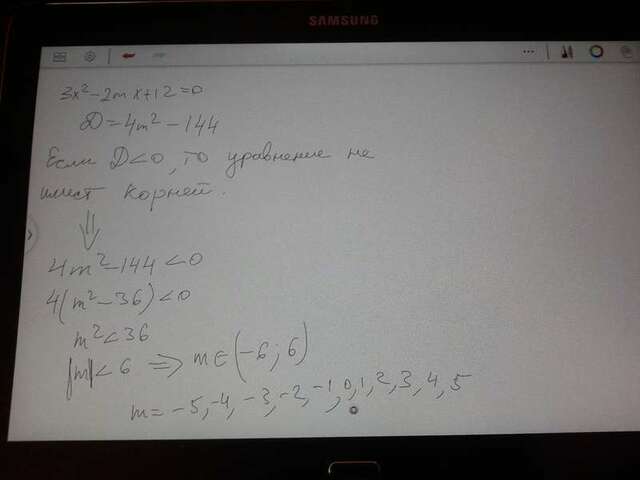 SAMSUNG
3x²-2mx+12=0
D=4m²-144
Если D<0, то уравнение не
имеет корней.
⇓
4m²-144<0
4(m²-36)<0
m²<36
|m|<6 ⇒ m∈(-6;6)
m=-5,-4,-3,-2,-1,0,1,2,3,4,5